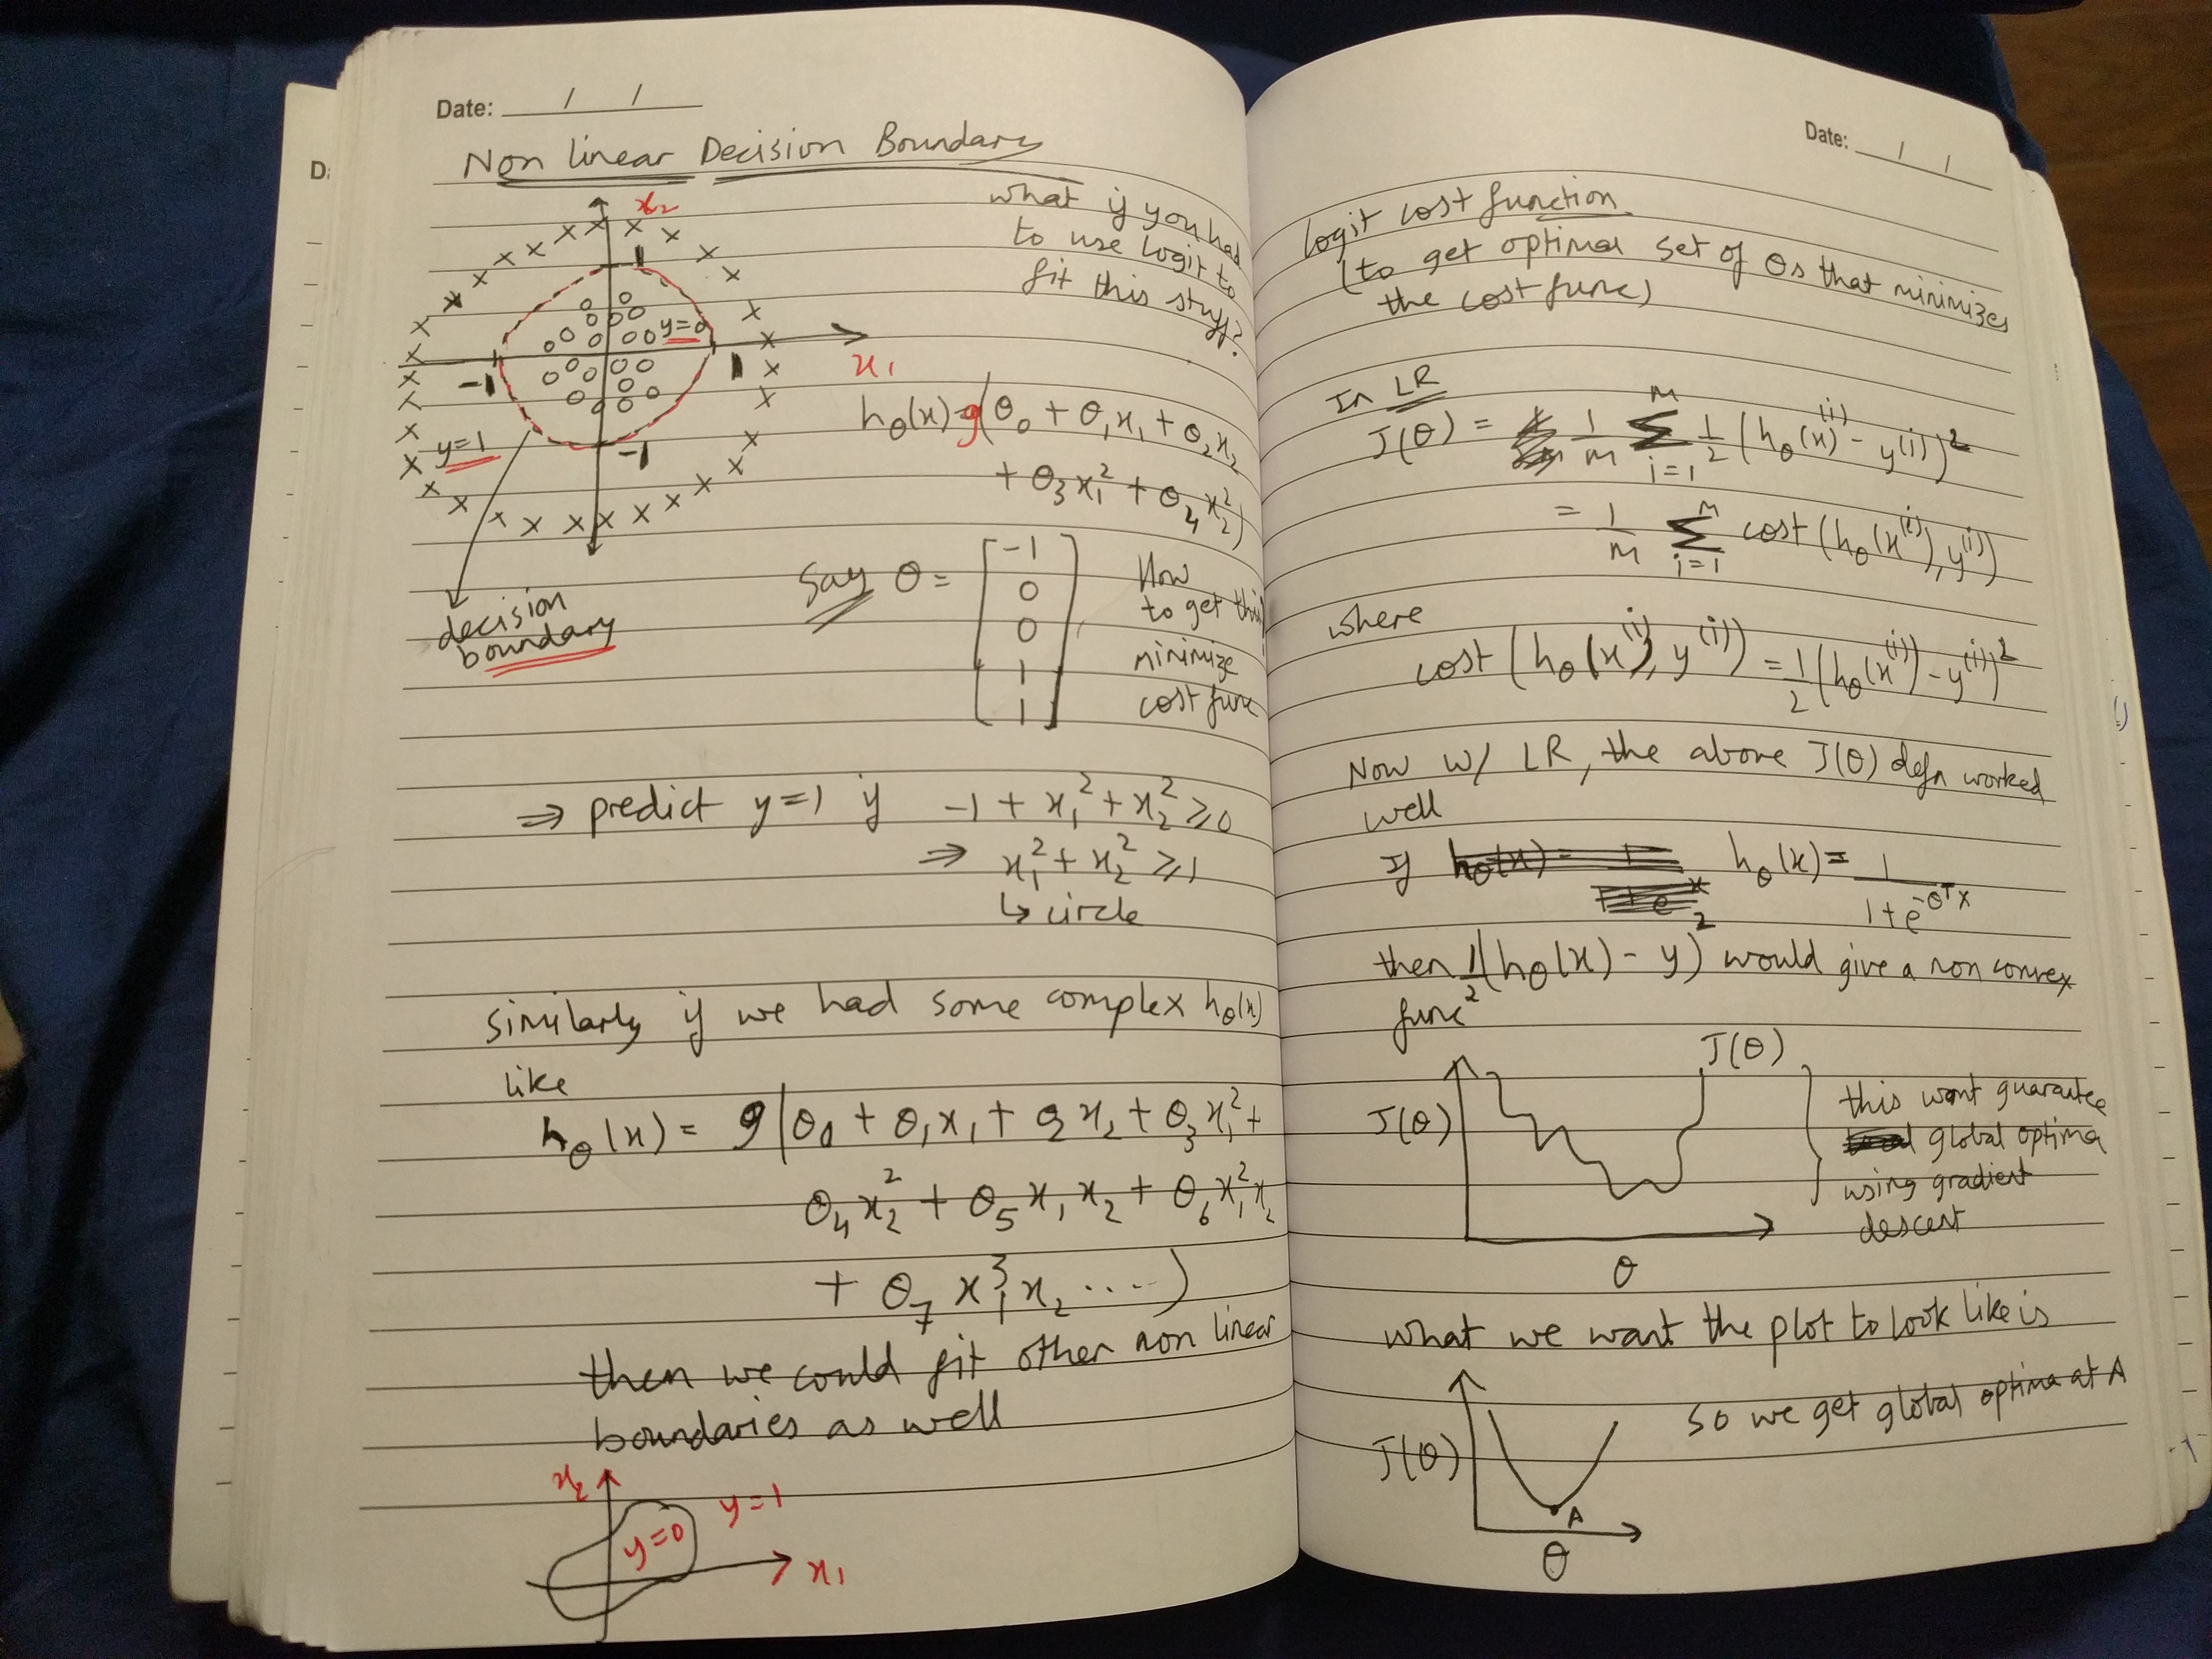 Date: / /
Non linear Decision Boundary
x₂
what if you had
to use logit to
fit this stuff?
1
y=0
-1
1
x₁
y=1
-1
hθ(x)=g(θ₀ + θ₁x₁ + θ₂x₂
+ θ₃x₁² + θ₄x₂²)
decision
boundary
Say θ = [-1
0
0
1
1]
How
to get this
minimize
cost func
⇒ predict y=1 if -1 + x₁² + x₂² ⩾ 0
⇒ x₁² + x₂² ⩾ 1
↳ circle
similarly if we had some complex hθ(x)
like
hθ(x) = g(θ₀ + θ₁x₁ + θ₂x₂ + θ₃x₁² +
θ₄x₂² + θ₅x₁x₂ + θ₆x₁²x₂
+ θ₇x₁³x₂ ....)
then we could fit other non linear
boundaries as well
x₂
y=1
y=0
x₁
Date: / /
logit cost function
(to get optimal set of θs that minimizes
the cost func)
In LR
J(θ) = 1/m Σᵢ₌₁ᵐ 1/2 (hθ(x)⁽ⁱ⁾ - y⁽ⁱ⁾)²
= 1/m Σᵢ₌₁ᵐ cost(hθ(x⁽ⁱ⁾), y⁽ⁱ⁾)
where
cost(hθ(x⁽ⁱ⁾), y⁽ⁱ⁾) = 1/2 (hθ(x⁽ⁱ⁾) - y⁽ⁱ⁾)²
Now w/ LR, the above J(θ) defn worked
well
If hθ(x) = 1/(1+e^-θᵀx)
then 1/2(hθ(x) - y)² would give a non convex
func
J(θ)
J(θ)
this wont guarantee
global optima
using gradient
descent
θ
what we want the plot to look like is
J(θ)
so we get global optima at A
A
θ